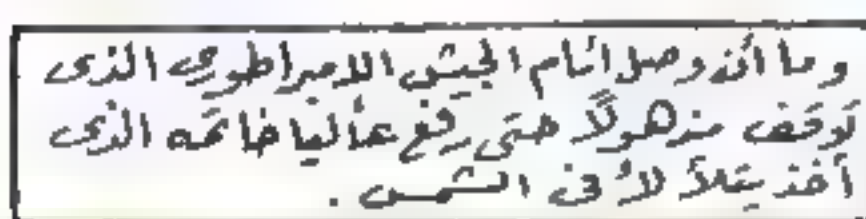 وما أن وصل أمام الجيش الامبراطورى الذى
توقف مذهولًا حتى رفع عاليا خاتمه الذى
أخذ يتلألأ فى الشمس .